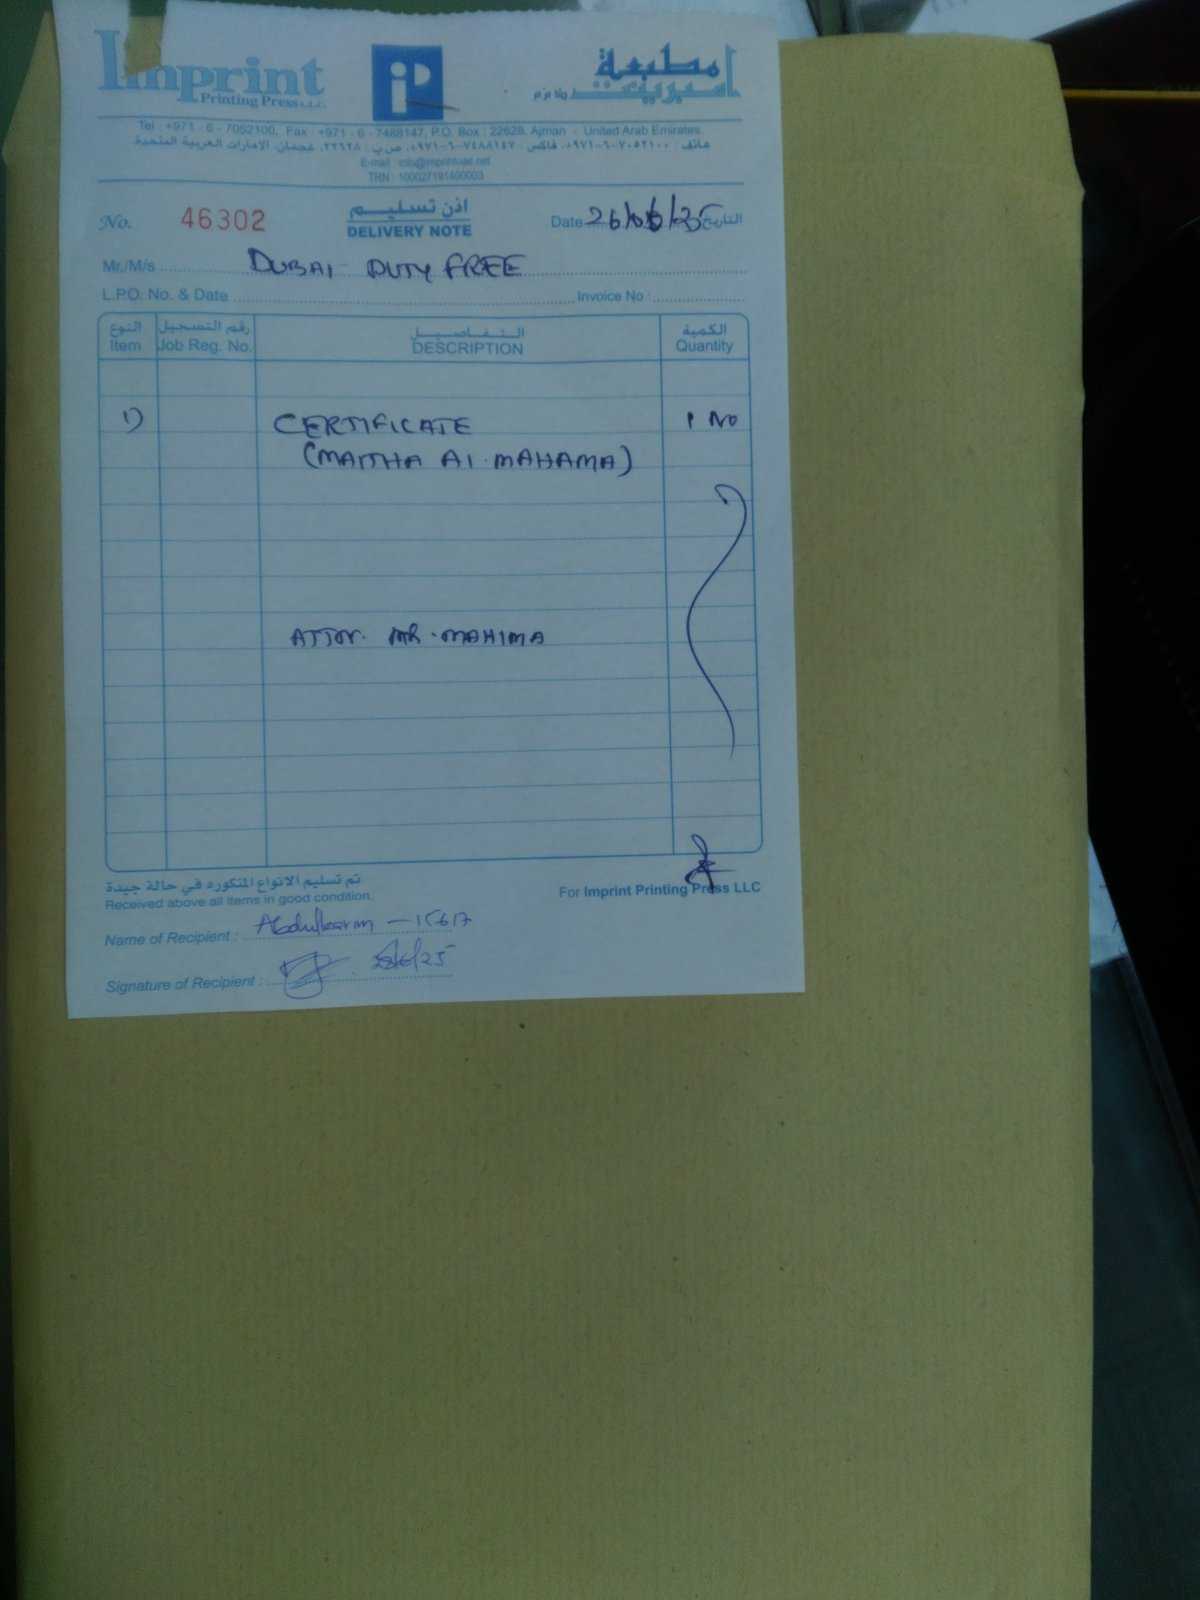 Imprint
Printing Press L.L.C.
iP
مطبعة
امبرينت ذ.م.م
Tel : +971 - 6 - 7052100, Fax : +971 - 6 - 7488147, P.O. Box : 22628, Ajman - United Arab Emirates.
هاتف : ٧٠٥٢١٠٠-٦-٩٧١+، فاكس : ٧٤٨٨١٤٧-٦-٩٧١+، ص.ب : ٢٢٦٢٨، عجمان، الامارات العربية المتحدة
E-mail :
TRN : 100027191400003
No. 46302
اذن تسليم
DELIVERY NOTE
Date 26/06/25 التاريخ
Mr./M/s DUBAI DUTY FREE
L.P.O. No. & Date Invoice No :
النوع رقم التسجيل التفاصيل الكمية
Item Job Reg. No. DESCRIPTION Quantity
1) CERTIFICATE 1 NO
(MAITHA Al. MAHAMA)
ATTN. MR. MAHIMA
تم تسليم الانواع المذكوره في حالة جيدة
Received above all items in good condition.
For Imprint Printing Press LLC
Name of Recipient : Abdulkarim - 15617
Signature of Recipient : /6/25